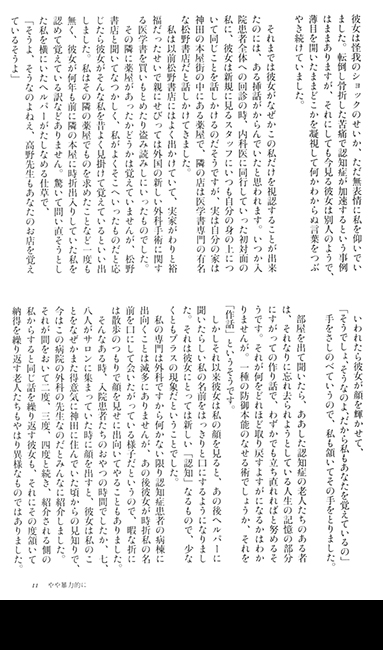 彼女は怪我のショックのせいか、ただ無表情に私を仰いでい
ました。転倒し骨折した苦痛で認知症が加速するという事例
はままありますが、それにしても今見る彼女は別人のようで、
薄目を開いたままどこかを凝視して何かわからぬ言葉をつぶ
やき続けていました。
それまでは彼女がなぜかこの私だけを視認することが出来
たのには、ある挿話がからんでいたと思われます。いつか入
院患者全体への回診の時、内科医に同行していった初対面の
私に、彼女は新規に見るスタッフにいつも自分の身の上につ
いて同じことを話しかけるのだそうですが、実は自分の家は
神田の本屋街の中にある薬屋で、隣の店は医学書専門の有名
な松野書店だと話しかけてきました。
私は以前松野書店にはよく出かけていて、実家がわりと裕
福だったせいで親にせびっては外国の新しい外科手術に関す
る医学書を買いもとめたり盗み読みしにいったものでした。
その隣に薬屋があったかどうかは覚えていませんが、松野
書店と聞いてなつかしく、私がよくそこへいったものだと応
じたら彼女がそんな私を昔よく見掛けて覚えているといい出
しました。私はその隣の薬屋でものを求めたことなど一度も
無く、彼女が何年も前に隣の本屋に時折出入りしていた私を
認めて覚えている訳などありません。驚いて問い直そうとし
た私を横にいたヘルパーがたしなめる仕草で、
「そうよ、そうなのよねえ、高野先生もあなたのお店を覚え
ているそうよ」
いわれたら彼女が顔を輝かせて、
「そうでしょ、そうなのよ、だから私もあなたを覚えているの」
手をさしのべているので、私も頷いてその手をとりました。
部屋を出て聞いたら、ああした認知症の老人たちのある者
は、それなりに忘れ去られようとしている人生の記憶の部分
にすがっての作り話で、わずかでも立ち直れればと努めるそ
うです。それが何をどれほど取り戻すよすがになるかはわか
りませんが、一種の防御本能のなせる術でしょうか、それを
「作話」というそうです。
しかしそれ以来彼女は私の顔を見ると、あの後ヘルパーに
聞いたらしい私の名前をはっきりと口にするようになりまし
た。それは彼女にとっては新しい「認知」なるもので、少な
くともプラスの現象だということでした。
私の専門は外科ですから何かない限り認知症患者の病棟に
出向くことは滅多にありませんが、あの後彼女が時折私の名
前を口にして会いたがっている様子だというので、暇な折に
は散歩のつもりで顔を見せに出向いてやることもありました。
そんなある時、入院患者たちのおやつの時間でしたか、七、
八人がサロンに集まっていた時に顔を出すと、彼女は私のこ
とをなぜかまた得意気に神田に住んでいた頃からの見知りで、
今はこの病院の外科の先生なのだとみんなに紹介しました。
それが間をおいて二度、三度、四度と続き、紹介される側の
私からすると同じ話を繰り返す彼女も、それにその度頷いて
納得を繰り返す老人たちもやはり異様なものではありました。
11 やや暴力的に